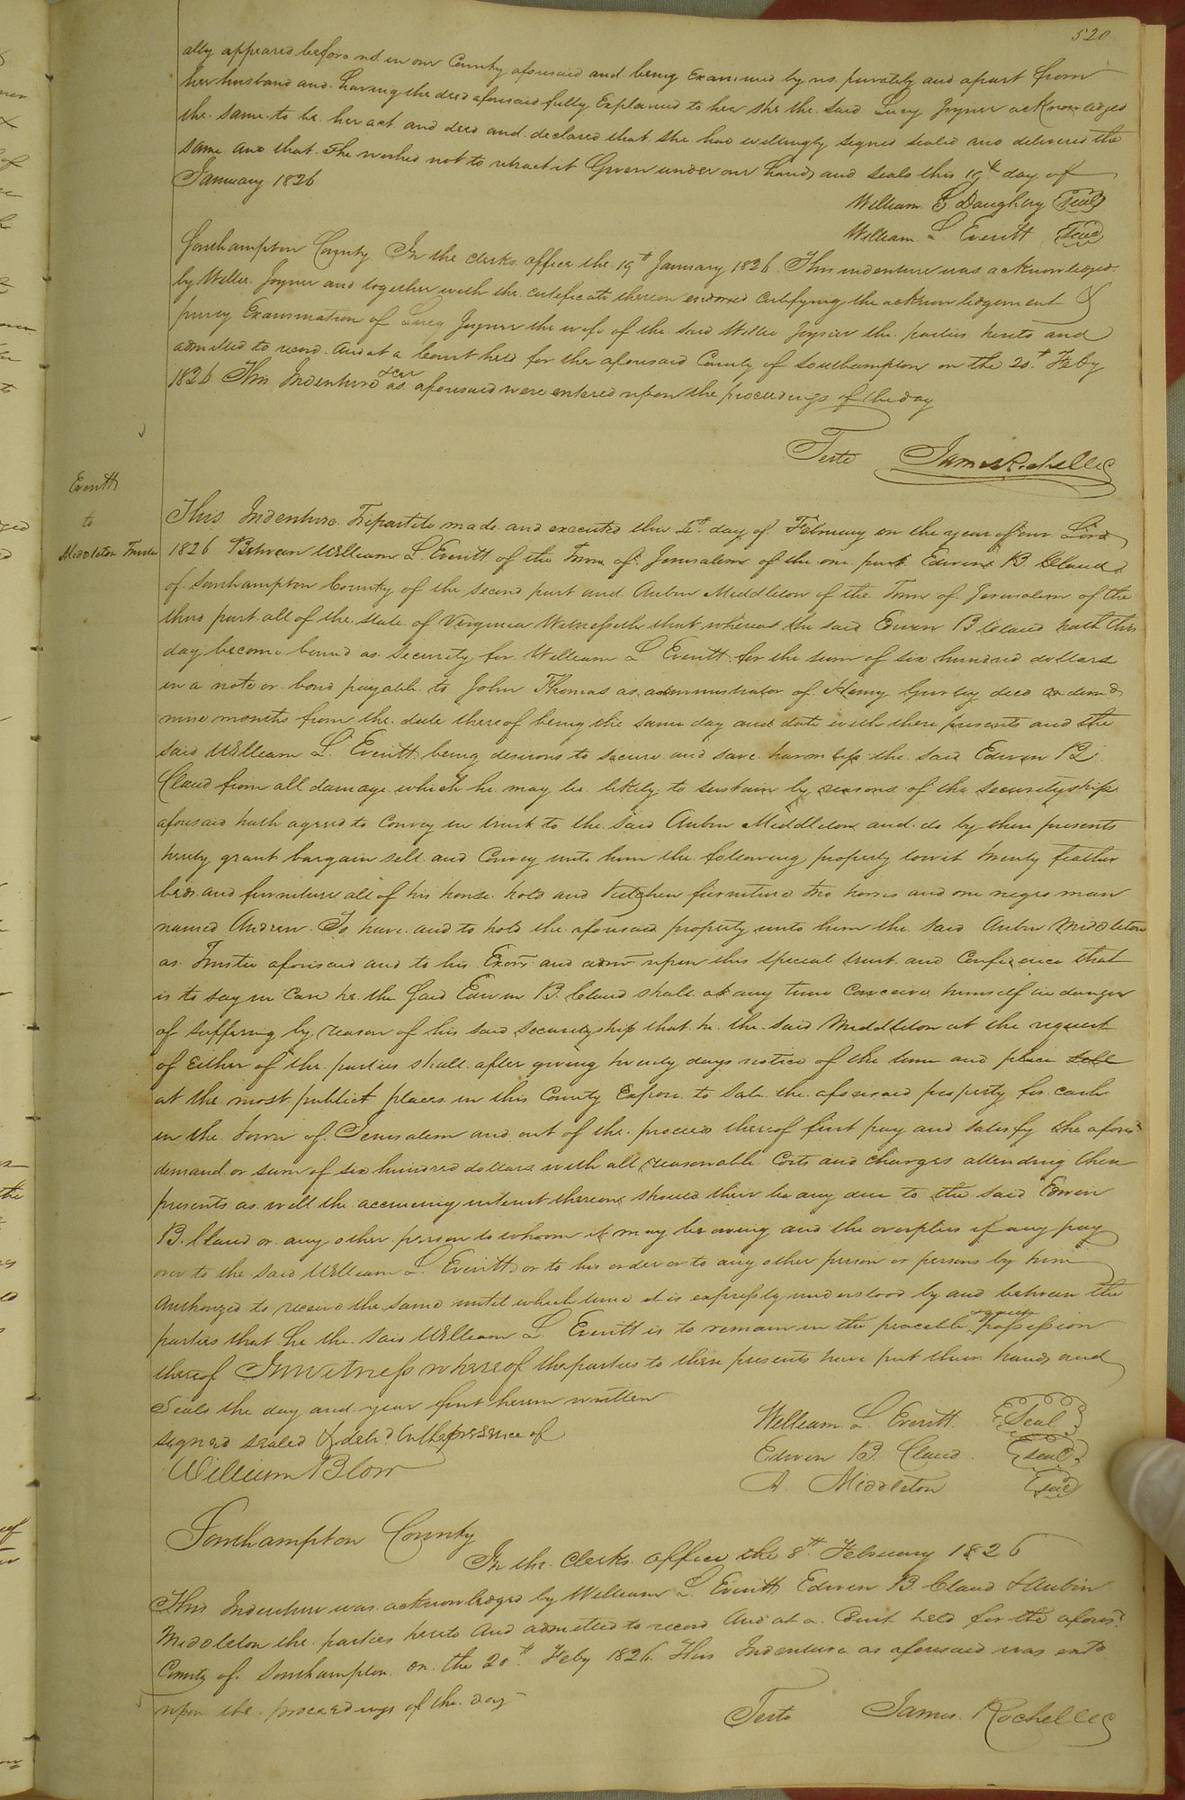 520
ally appeared before us in our County aforesaid and being Examined by us privately and apart from
her husband and having the deed aforesaid fully Explained to her she the said Lucy Joyner acknowledged
the same to be her act and deed and declared that she had willingly signed sealed and delivered the
same and that she wished not to retract it Given under our hands and seals this 19th day of
January 1826
William E Daughtry Seal
William L Everitt Seal
Southampton County In the clerks office the 19th January 1826 This indenture was acknowledged
by Willie Joyner and together with the certificate thereon endorsed certifying the acknowledgement &
privy Examination of Lucy Joyner the wife of the said Willie Joyner the parties hereto and
admitted to record And at a Court held for the aforesaid County of Southampton on the 20th Feby
1826 This Indenture &c as aforesaid were entered upon the proceedings of the day
Teste James Rochelle C
Everitt
to
Middleton Trustee
This Indenture Tripartite made and executed this day of February in the year of our Lord
1826 Between William L Everitt of the Town of Jerusalem of the one part Edwin B Claud
of Southampton County of the second part and Aubin Middleton of the Town of Jerusalem of the
third part all of the State of Virginia Witnesseth that whereas the said Edwin B Claud hath this
day become bound as Security for William L Everitt for the sum of six hundred dollars
in a note or bond payable to John Thomas as administrator of Henry Gurley decd on demd
nine months from the date thereof being the same day and date with these presents and the
said William L Everitt being desirous to secure and save harmless the said Edwin B
Claud from all damage which he may be likely to sustain by reasons of the securityship
aforesaid hath agreed to Convey in trust to the said Aubin Middleton and do by these presents
hereby grant bargain sell and Convey unto him the following property towit twenty feather
beds and furniture all of his house hold and kitchen furniture two horses and one negro man
named Andrew To have and to hold the aforesaid property unto him the said Aubin Middleton
as Trustee aforesaid and to his Exors and admrs upon this special trust and Confidence that
is to say in Case he the said Edwin B. Claud shall at any time Conceive himself in danger
of suffering by reason of his said securityship that he the said Middleton at the request
of Either of the parties shall after giving twenty days notice of the time and place sell
at the most publick places in this County Expose to Sale the aforesaid property for cash
in the Town of Jerusalem and out of the proceeds thereof first pay and satisfy the aforesd
demand or sum of six hundred dollars with all reasonable Costs and charges attending these
presents as well the accruing interest thereon should their be any due to the said Edwin
B. Claud or any other person to whom it may be owing and the overplus if any pay
over to the said William L. Everitt or to his order or to any other person or persons by him
Authorized to receive the same until which time it is expressly understood by and between the
parties that he the said William L Everitt is to remain in the peaceble possession
thereof In witness whereof the parties to these presents have put their hands and
Seals the day and year first herein written
signed sealed & deld in the presence of
William Blow
William L Everitt Seal
Edwin B. Claud Seal
A. Middleton Seal
Southampton County
In the Clerks office the 8th February 1826
This Indenture was acknowledged by William L. Everitt Edwin B. Claud & Aubin
Middleton the parties hereto and admitted to record And at a Court held for the aforesd
County of Southampton on the 20th Feby 1826 This Indenture as aforesaid was entd
upon the proceedings of the day
Teste James Rochelle C